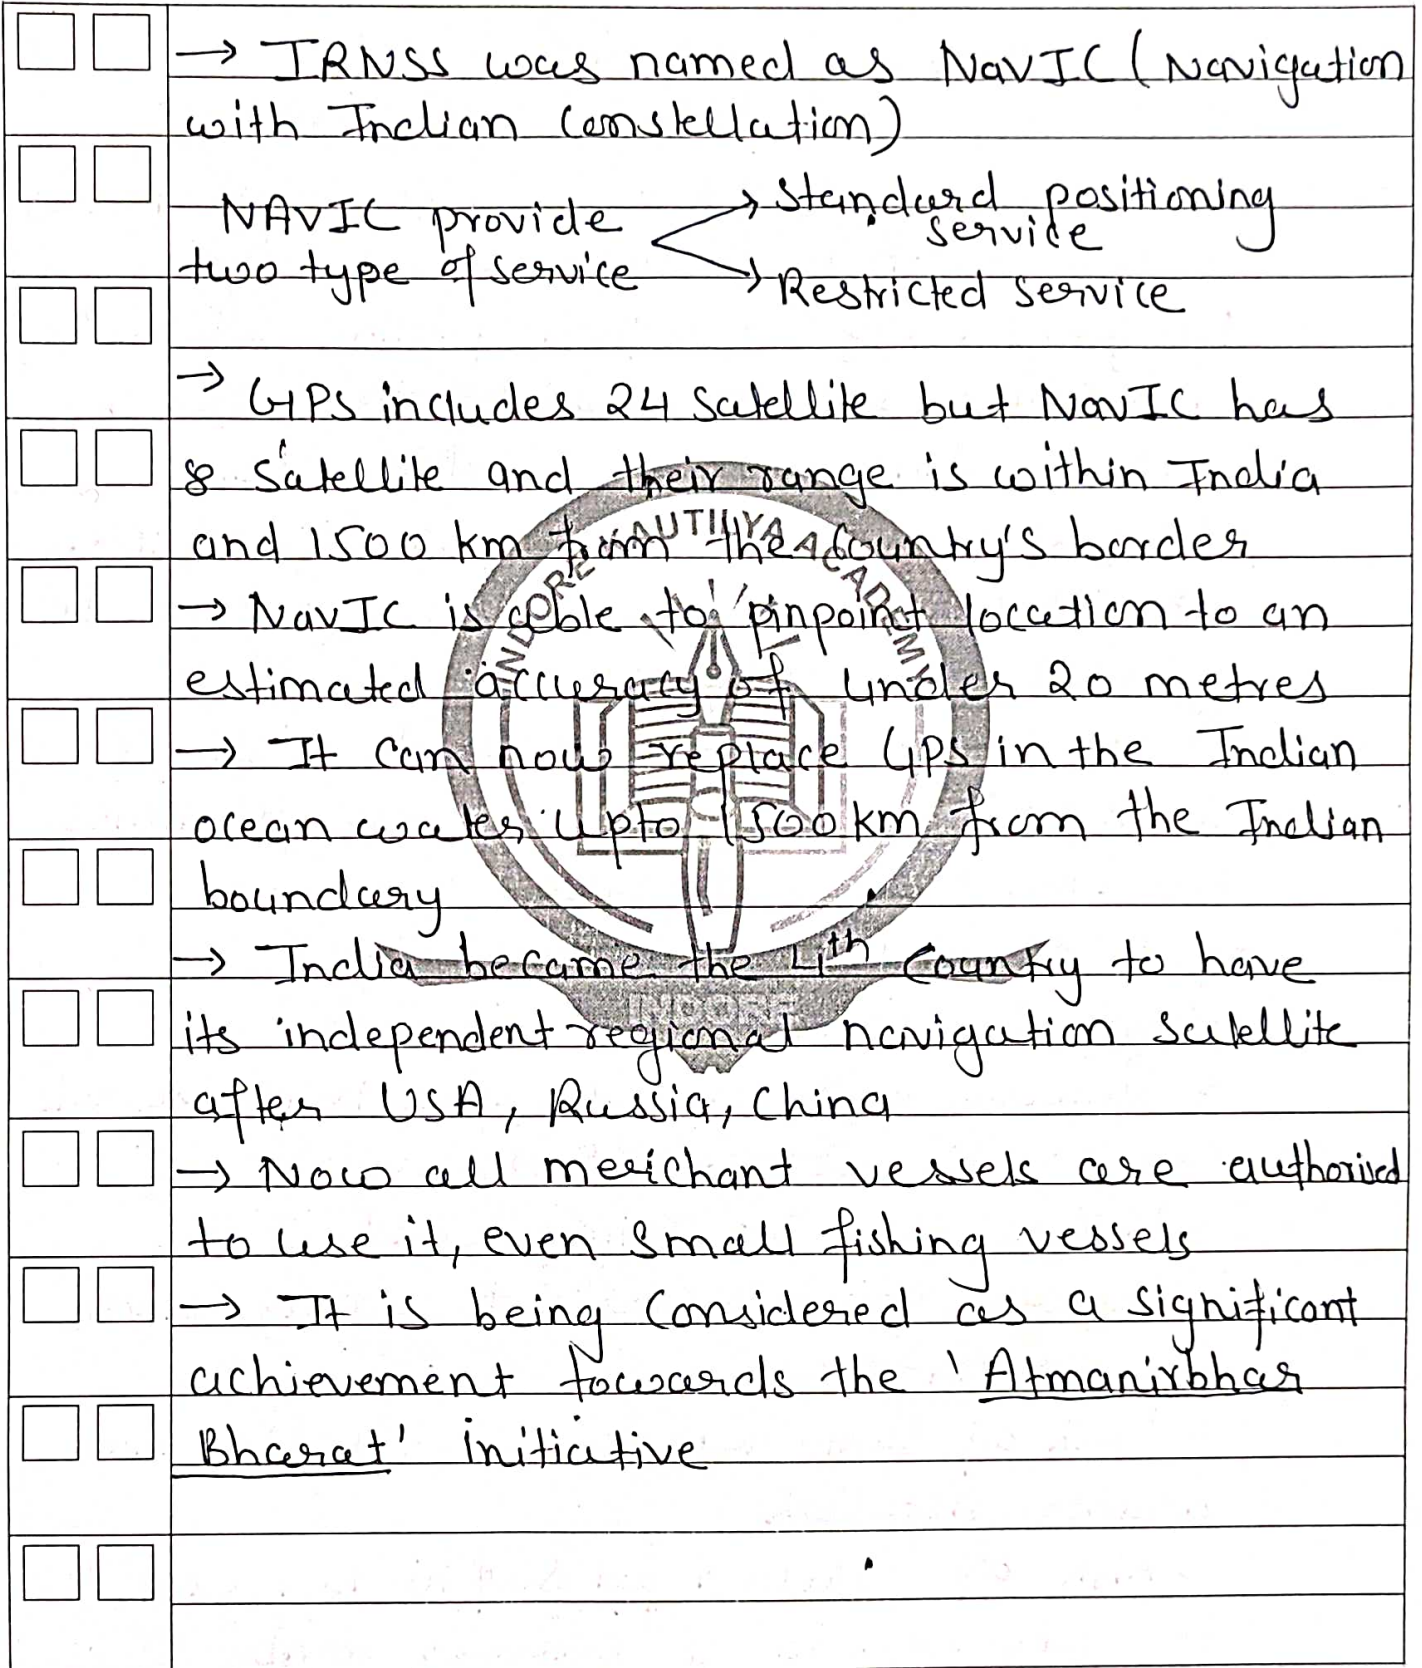 → IRNSS was named as NavIC (Navigation
with Indian Constellation)
NAVIC provide two type of service
→ Standard positioning service
→ Restricted service
→ GPS includes 24 Satellite but NavIC has
8 Satellite and their range is within India
and 1500 km from the Country's border
→ NavIC is able to pinpoint location to an
estimated accuracy of under 20 metres
→ It can now replace GPS in the Indian
ocean water upto 1500 km from the Indian
boundary
→ India became the 4th Country to have
its independent regional navigation satellite
after USA, Russia, China
→ Now all merchant vessels are authorised
to use it, even small fishing vessels
→ It is being Considered as a significant
achievement towards the 'Atmanirbhar
Bharat' initiative
INDORE KAUTILYA ACADEMY
INDORE